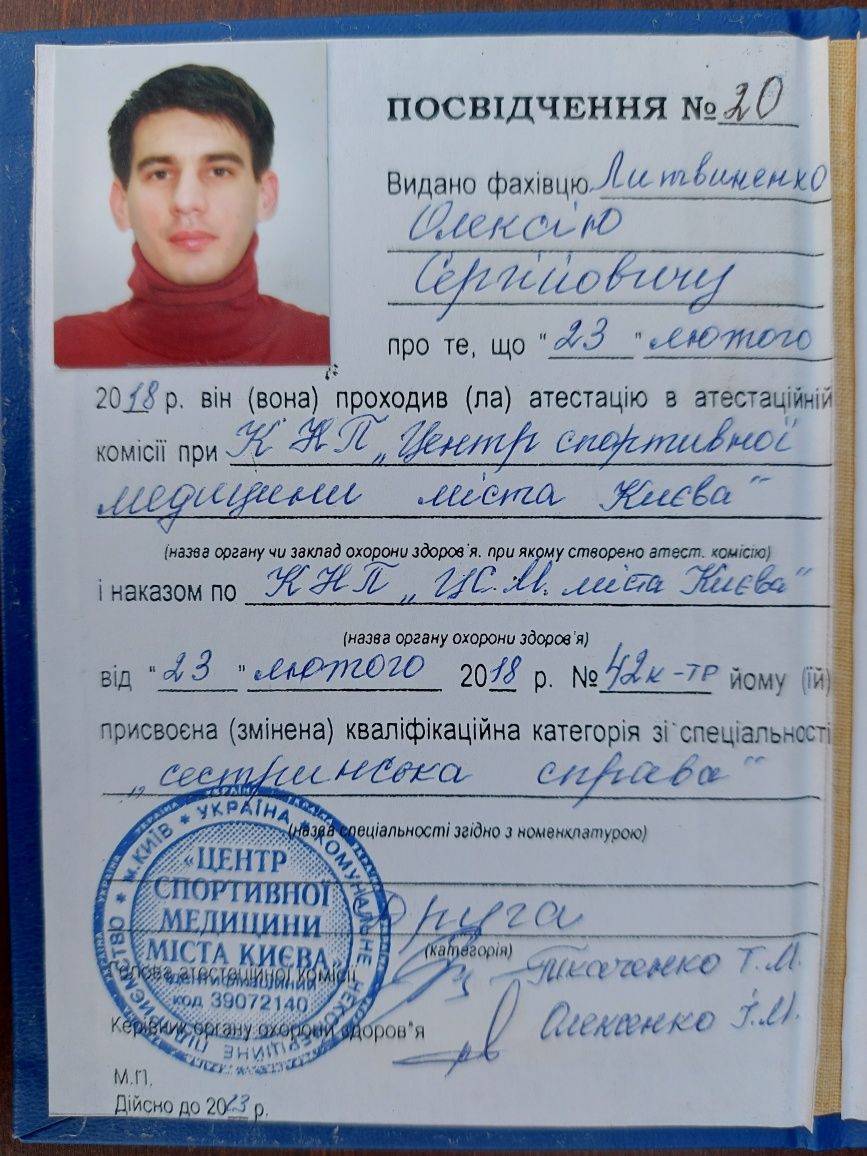 ПОСВІДЧЕННЯ № 20
Видано фахівцю Литвиненко
Олексію
Сергійовичу
про те, що "23" лютого
2018 р. він (вона) проходив (ла) атестацію в атестаційній
комісії при КНП „Центр спортивної
медицини міста Києва"
(назва органу чи заклад охорони здоров'я. при якому створено атест. комісію)
і наказом по КНП „ЦС.М. міста Києва"
(назва органу охорони здоров'я)
від "23" лютого 2018 р. № 42к-тр йому (їй)
присвоєна (змінена) кваліфікаційна категорія зі спеціальності
„сестринська справа"
(назва спеціальності згідно з номенклатурою)
друга
(категорія)
Голова атестаційної комісії Ткаченко Т.М.
Керівник органу охорони здоров"я
М.П.
Дійсно до 2023 р.
* УКРАЇНА * КОМУНАЛЬНЕ НЕКОМЕРЦІЙНЕ ПІДПРИЄМСТВО * М.КИЇВ
«ЦЕНТР
СПОРТИВНОЇ
МЕДИЦИНИ
МІСТА КИЄВА»
Ідентифікаційний
код 39072140